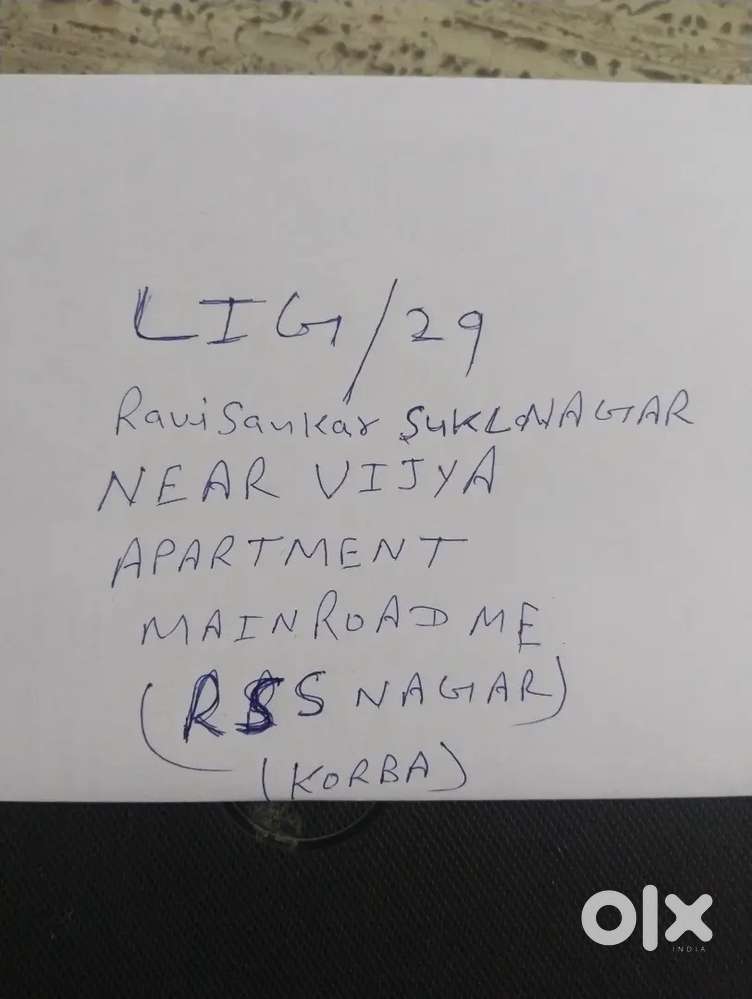 LIG/29
RaviSankar SUKLNAGAR
NEAR VIJYA
APARTMENT
MAINROAD ME
(RSS NAGAR)
(KORBA)
olx
INDIA